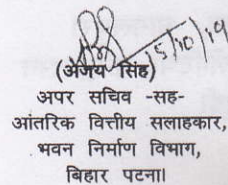 15/10/19
(अजय सिंह)
अपर सचिव -सह-
आंतरिक वित्तीय सलाहकार,
भवन निर्माण विभाग,
बिहार पटना।